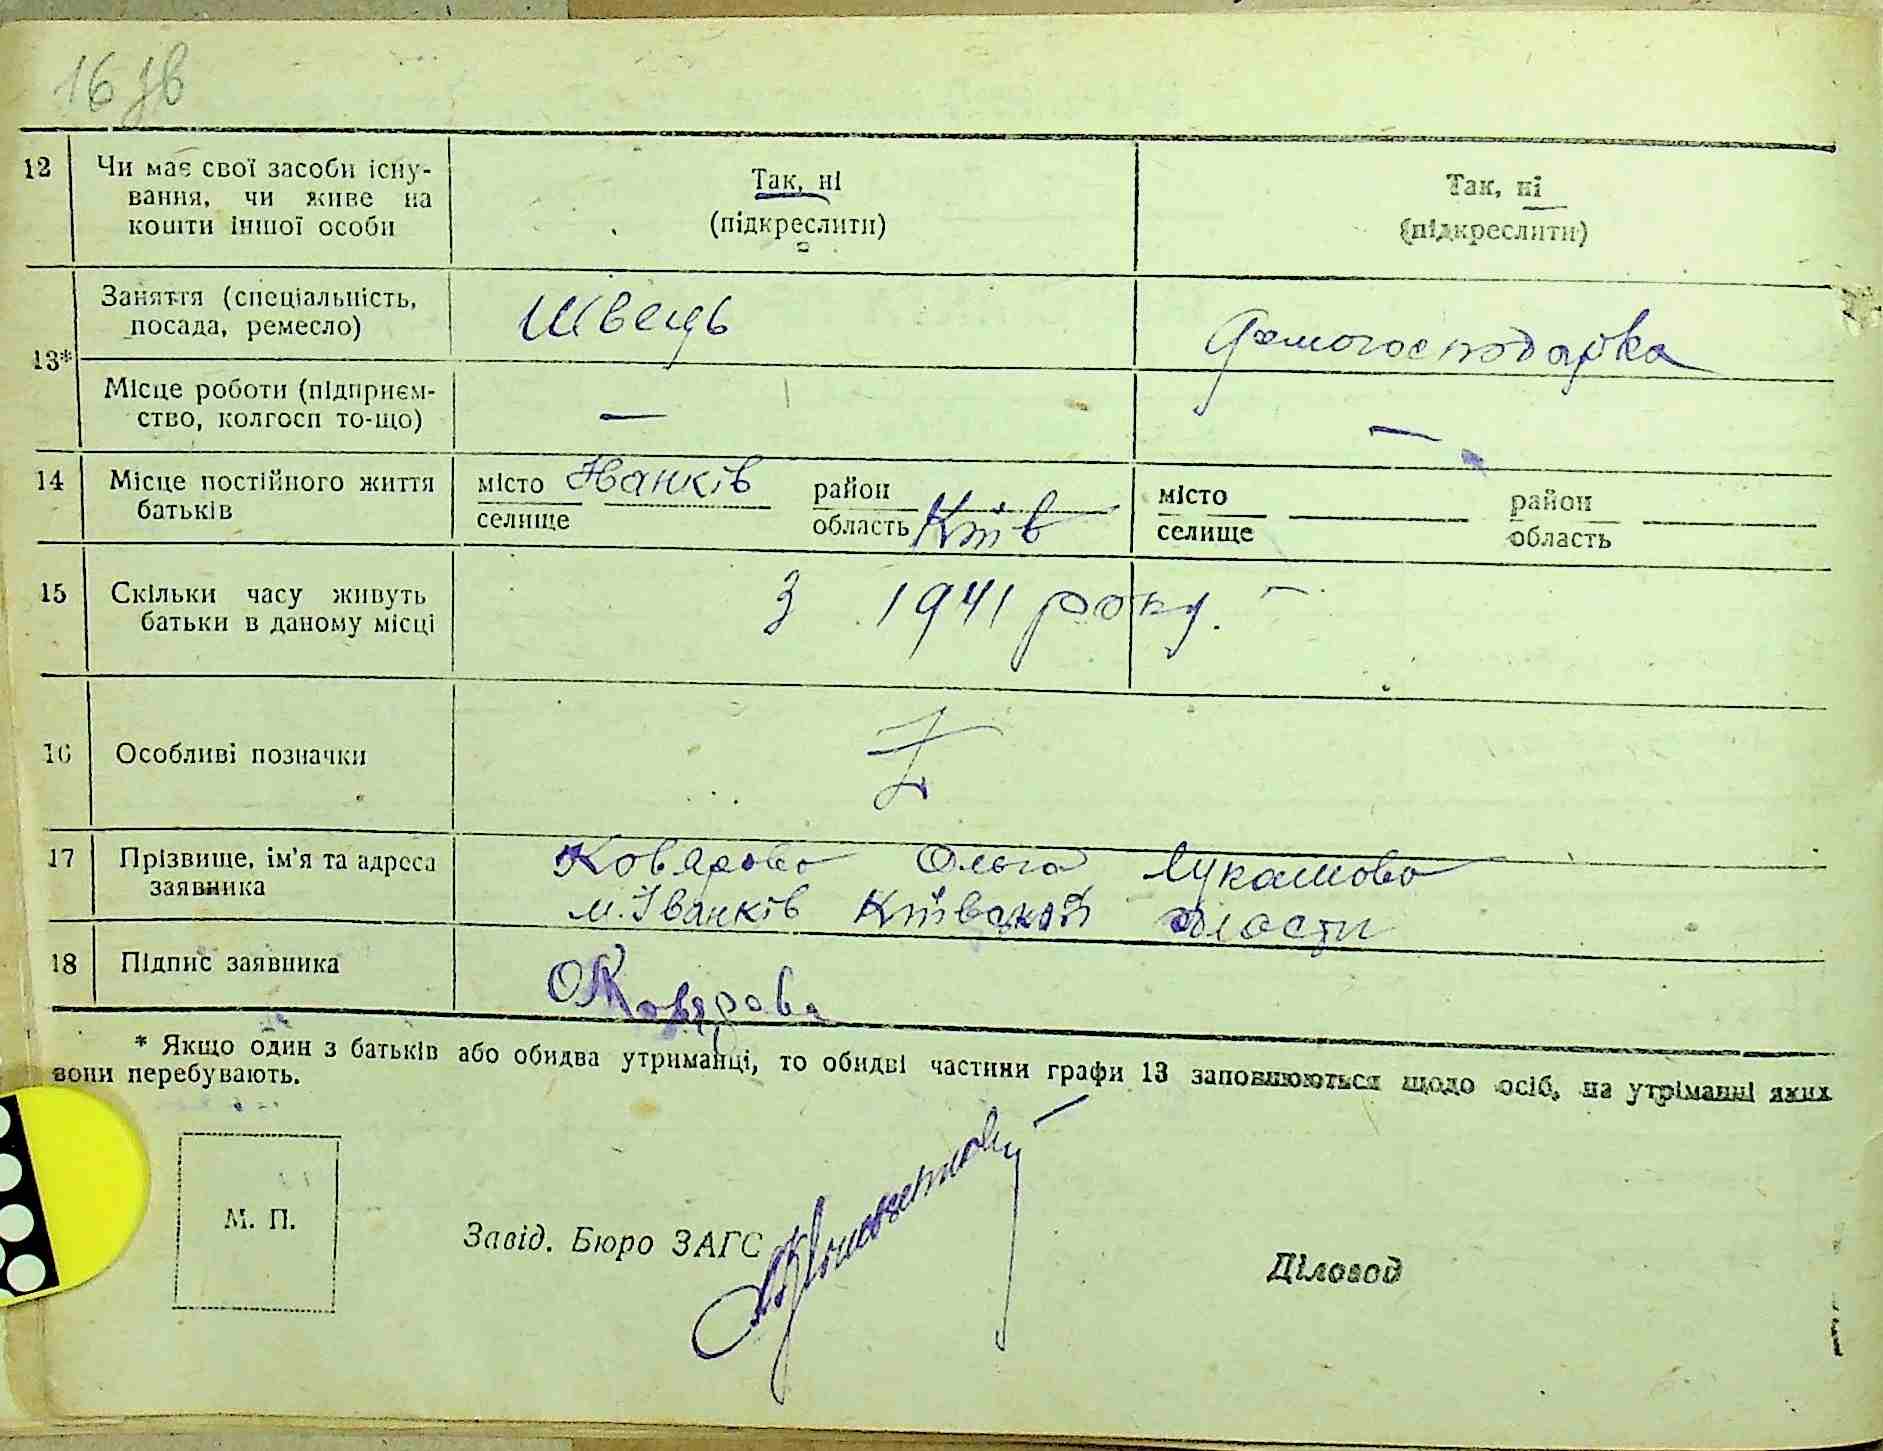 16 зв
12 Чи має свої засоби існу-
вання, чи живе на
кошти іншої особи
Так, ні
(підкреслити)
Так, ні
(підкреслити)
13*
Заняття (спеціальність,
посада, ремесло)
Швець
Домогосподарка
Місце роботи (підприєм-
ство, колгосп то-що)
—
—
14 Місце постійного життя
батьків
місто Іванків район
селище область Київ
місто район
селище область
15 Скільки часу живуть
батьки в даному місці
З 1941 року. —
16 Особливі позначки
17 Прізвище, ім'я та адреса
заявника
Ольга Лукашова
м. Іванків Київської області
18 Підпис заявника
* Якщо один з батьків або обидва утриманці, то обидві частини графи 13 заповнюються щодо осіб, на утріманні яких
вони перебувають.
М. П.
Завід. Бюро ЗАГС
Діловод